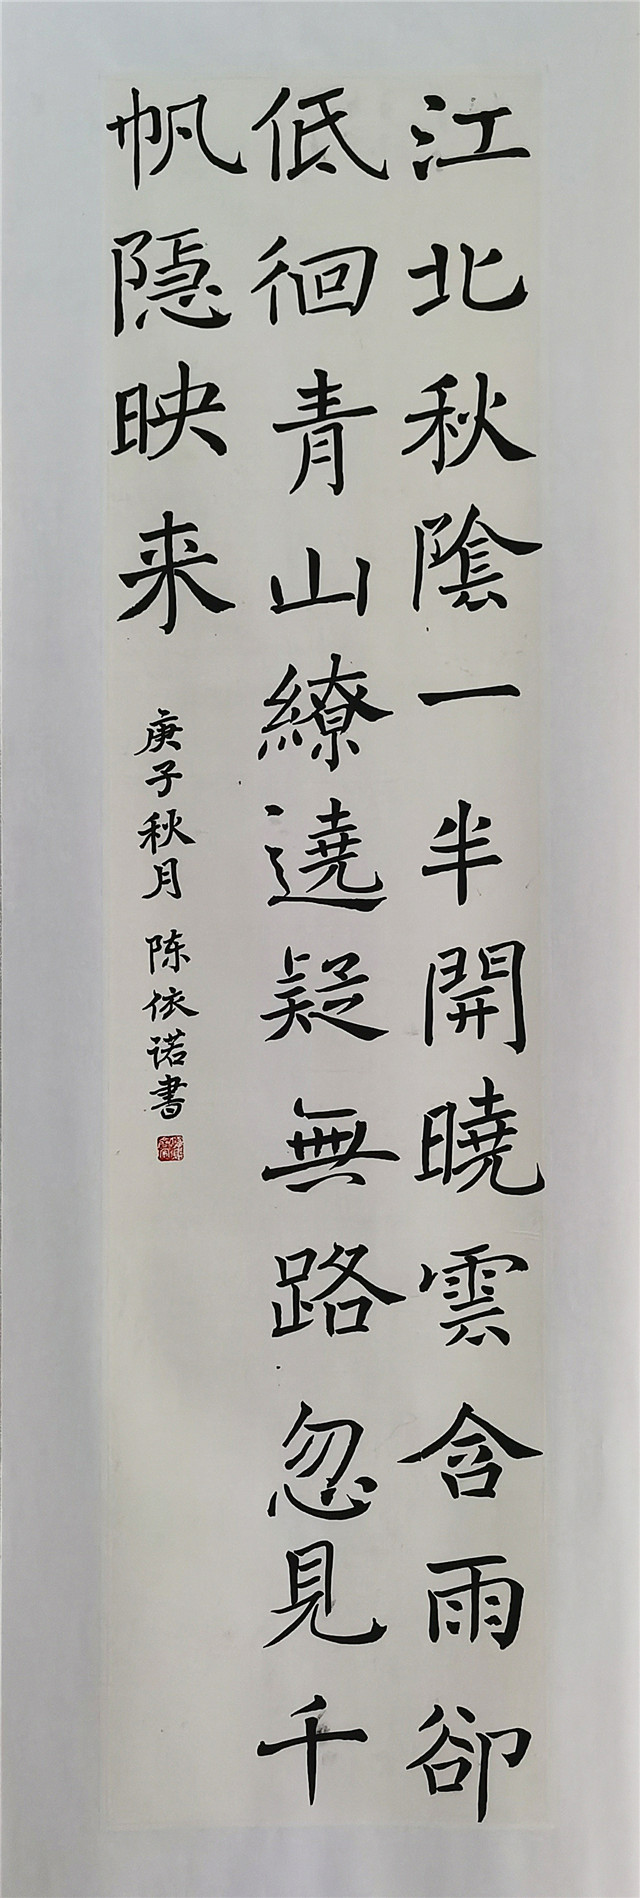 江北秋陰一半開曉雲含雨卻
低徊青山繚遶疑無路忽見千
帆隱映来
庚子秋月 陈依诺書